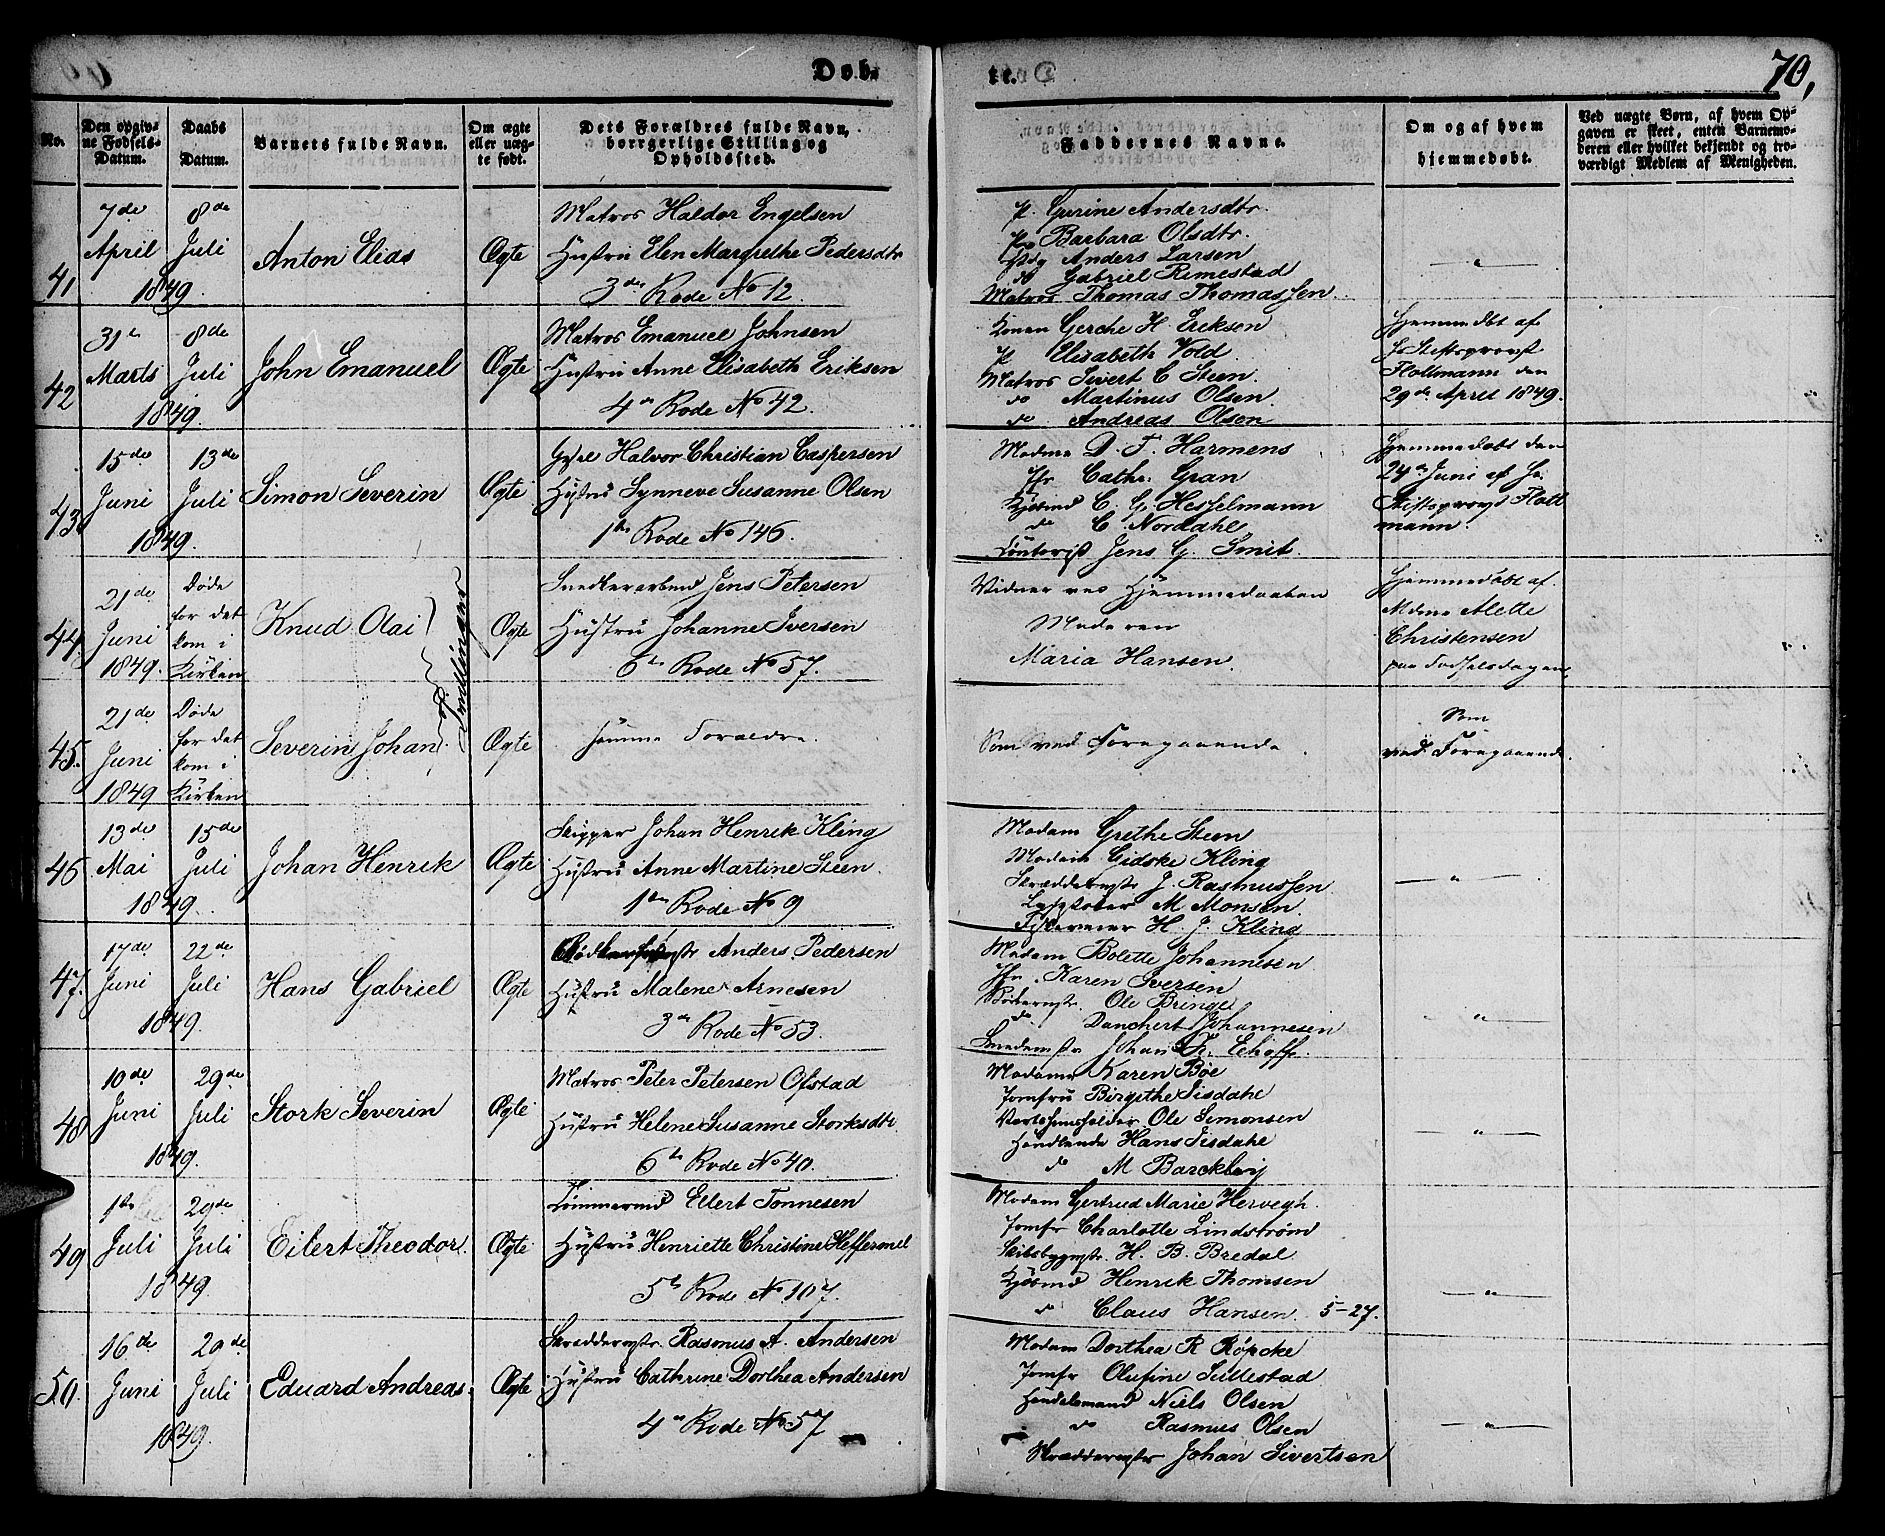 Døb-
te.
70,
No.
Den opgiv-
ne Fødsels-
Datum.
Daabs
Datum.
Barnets fulde Navn.
Om ægte
eller uæg-
te født.
Dets Forældres fulde Navn,
borrgerlige Stilling og
Opholdssted.
Faddernes Navne.
Om og af hvem
hjemmedøbt.
Ved uægte Børn, af hvem Op-
gaven er skeet, enten Barnemo-
deren eller hvilket bekjendt og tro-
værdigt Medlem af Menigheden.
41
7de
April
8de
Juli
1849.
Anton Elias
Ægte
Matros Haldor Engelsen
Hustru Elen Margrethe Pedersdtr
3de Rode No 12.
P. Gurine Andersdtr.
Barbara Olsdtr.
Anders Larsen
do Gabriel Rimestad
Matros Thomas Thomassen.
— " —
42
31te
Marts
8de
Juli
1849.
John Emanuel
Ægte
Matros Emanuel Johnsen
Hustru Anne Elisabeth Eriksen
4de Rode No 42.
Konen Gerche H. Eriksen
P Elisabeth Vold.
Matros Sivert C Steen.
do Martinus Olsen.
do Andreas Olson.
Hjemmedøbt af
Hr Stiftsprovst
Holtmann den
29de April 1849.
43
15de
Juni
13de
Juli
1849.
Simon Severin
Ægte
Halvor Christian Caspersen
Hustru Synneve Susanne Olsen
1ste Rode No 146.
Madme D. T. Harmens
Jfr Cathr. Gran
Kjøbmd C. G. Hesselmann
do C Nordahl
Jens G. Smit.
Hjemmedøbt den
24de Juni af Hr
Stiftsprovst Holt
mann.
44.
21de
Juni
1849.
Døde
før det
kom i
Kirken
Knud Olai
Tvillinger
Ægte
Snedkerarbmd Jens Petersen
Hustru Johanne Iversen
6te Rode No 57.
Vidner ved Hjemmedaaben
Moderen
Maria Hansen.
Hjemmedøbt af.
Mdme Alette
Christensen
paa Fødselsdagen.
45.
21de
Juni
1849
Døde
før det
kom i
Kirken
Severin Johan
Ægte
Samme Forældre.
Som ved Foregaaende.
Som
ved Foregaaende.
46
13de
Mai
15de
Juli
1849.
Johan Henrik
Ægte
Skipper Johan Henrik Kling
Hustru Anne Martine Steen.
1ste Rode No 9
Madam Grethe Steen
Madam Gidske Kling
Skræddermstr J. Rasmussen.
M Monsen.
H. J. Kling
— " —
47.
17de
Juni
22de
Juli
1849.
Hans Gabriel
Ægte
Anders Pedersen
Hustru Malene Arnesen
3de Rode No 53.
Madam Bolette Johannesen
Jfr. Karen Iversen
Bødkermstr. Ole Bringe
do Danchert Johannesen
Smedemstr Johan Fr. Echoff.
— " —
48
10de
Juni
29de
Juli
1849.
Stork Severin
Ægte
Matros Peter Petersen Ofstad
Hustru Helene Susanne Storksdtr.
6te Rode No 40.
Madame Karen Bøe
Jomfru Birgithe Sisdahl
Vertshuusholder Ole Simonsen
Handlende Hans Sisdahl
do M Barckley
— " —
49
1ste
Juli
29de
Juli
1849
Eilert Theodor.
Ægte
Tømmermd Ellert Tønnesen
Hustru Henriette Christine Heffermel
5te Rode No. 107.
Madam Gertrud Marie Hervegh.
Jomfr Charlotte Lindstrøm
Skibsbygmstr. H. B. Bredal
Kjøbmd Henrik Thomsen
do Claus Hansen. 5-27.
— " —
50.
16de
Juni
29de
Juli
1849.
Eduard Andreas.
Ægte
Skræddermstr. Rasmus A. Andersen
Hustru Cathrine Dorthea Andersen
4de Rode No 57
Madam Dorthea R Røpcke
Jomfr Olufine Sullestad
Handelsmand Niels Olsen
do Rasmus Olsen
Skræddermstr Johan Sivertsen
— " —